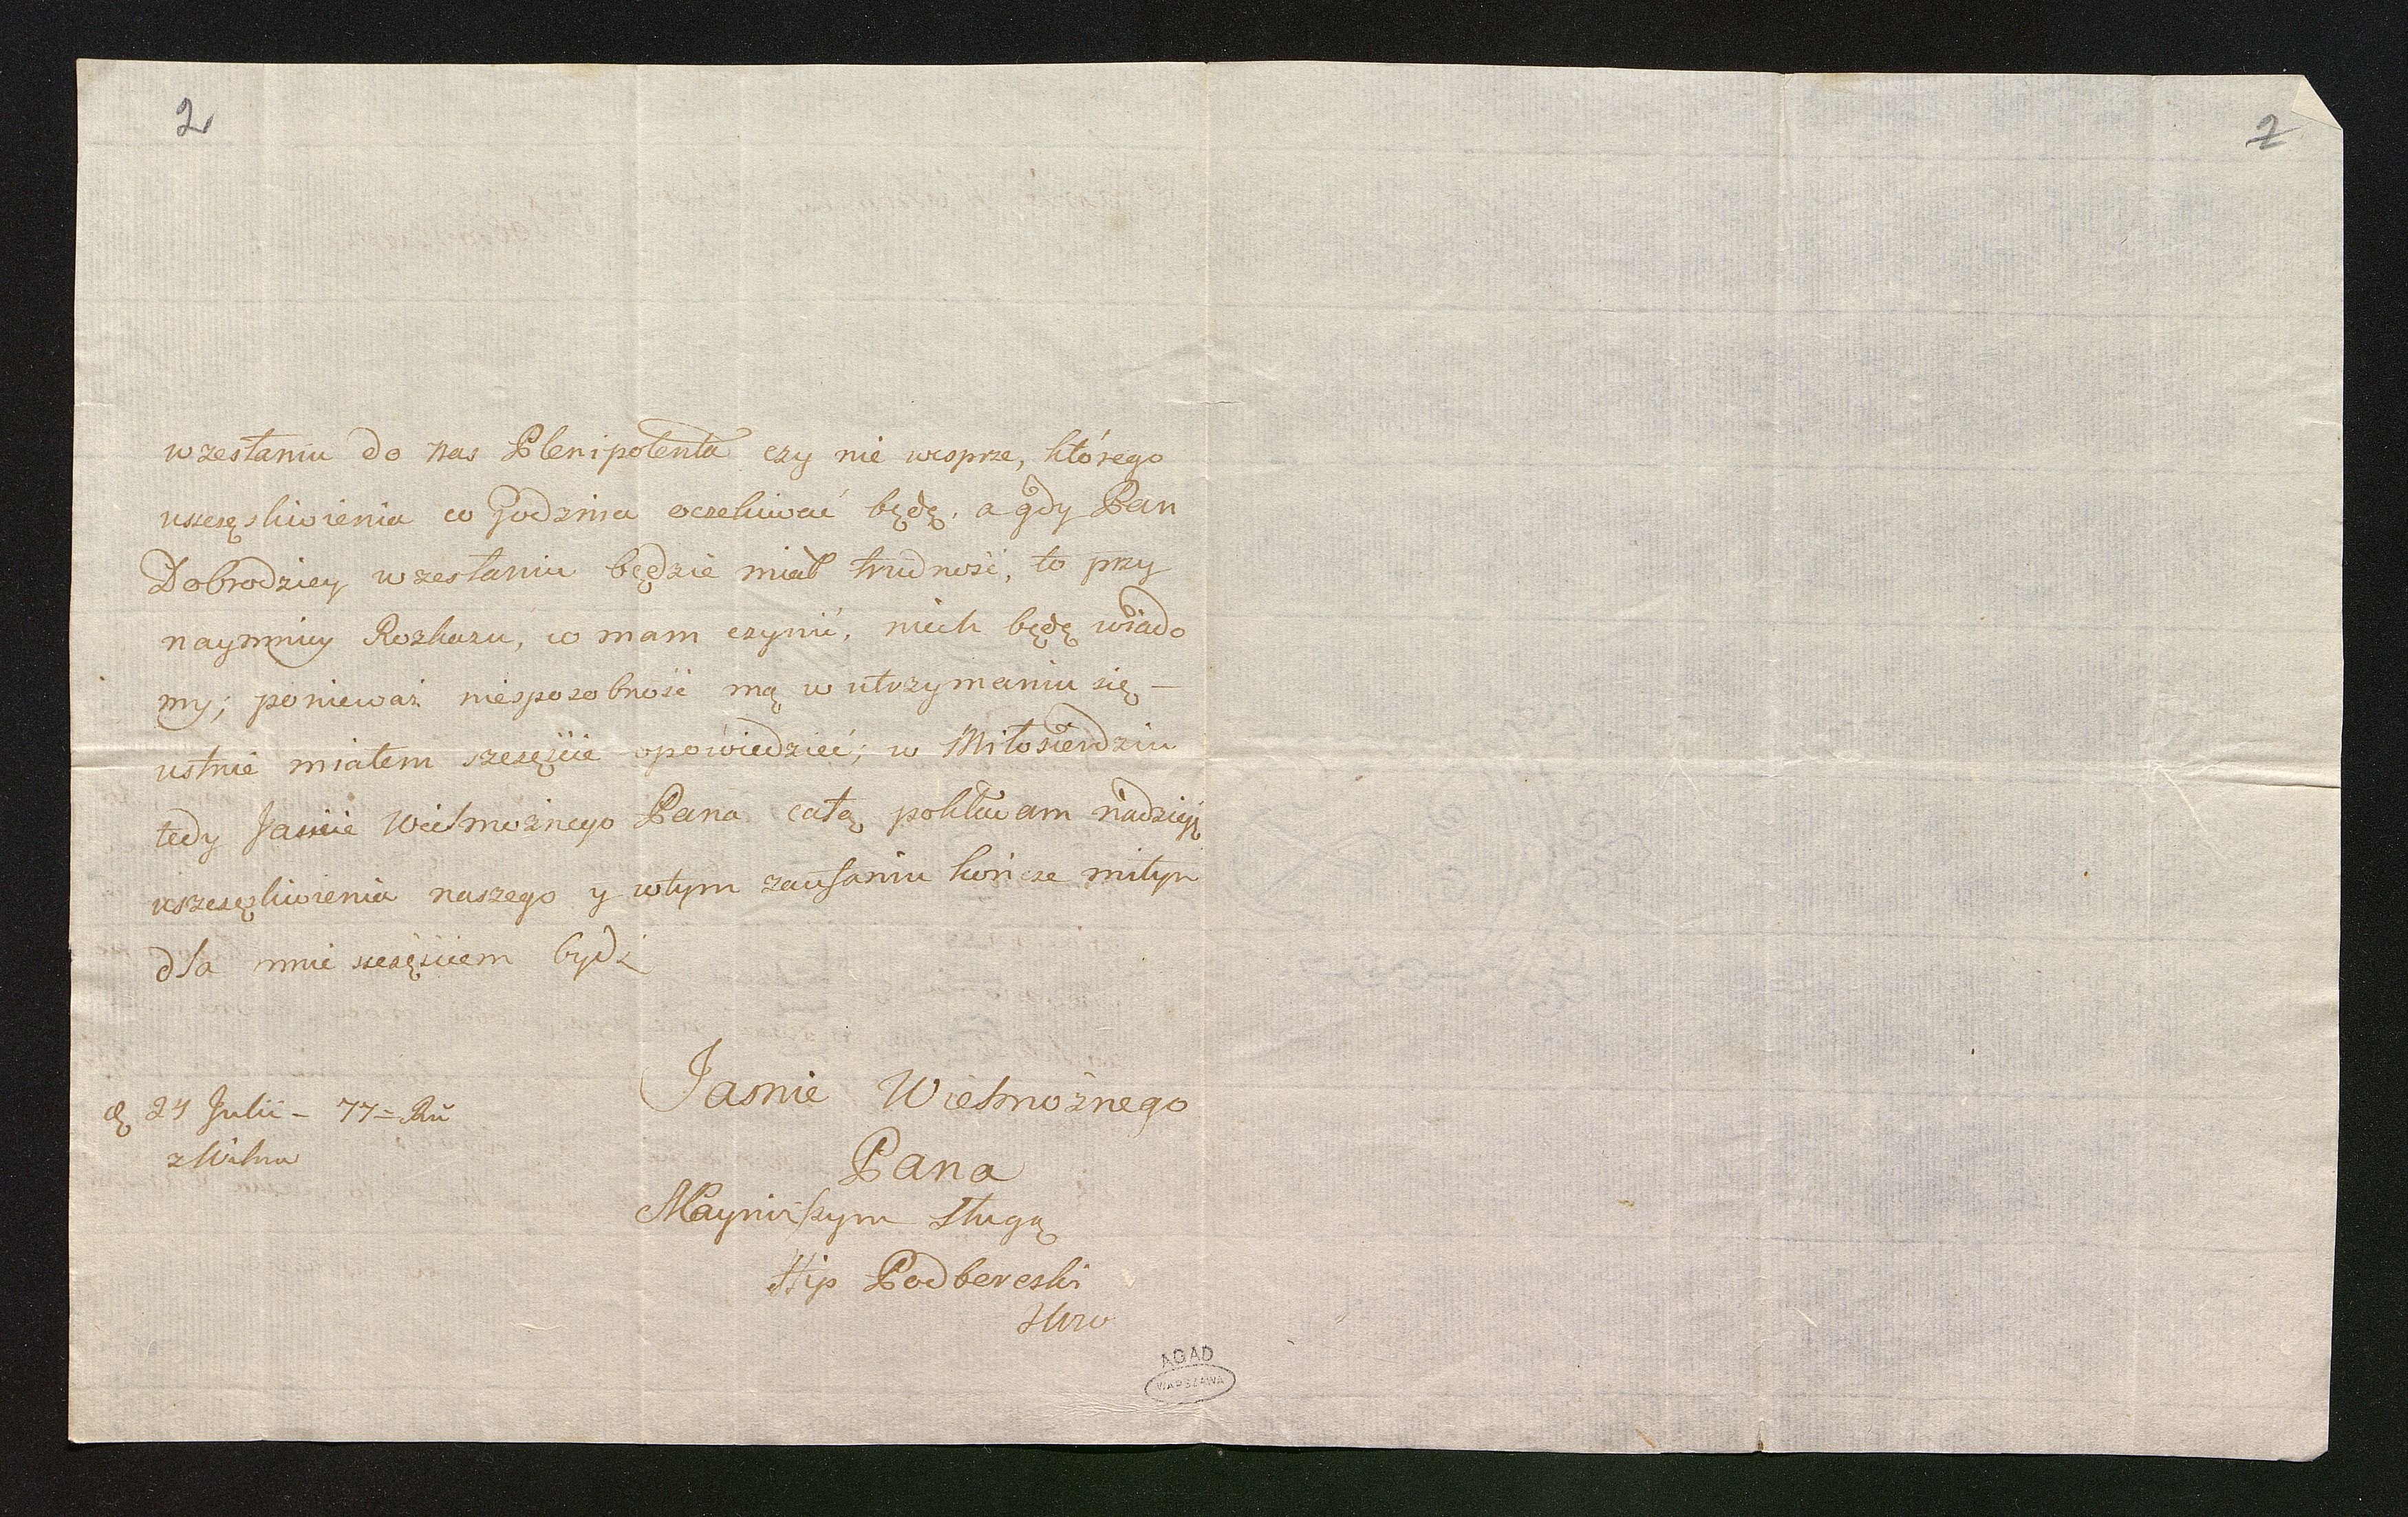 2
2
w zesłaniu do nas Plenipotenta czy nie wesprze, którego
uszczęsliwienia co Godzina oczekiwać będę. a gdy Pan
Dobrodziey w zesłaniu będzie miał trudność, to przy
naymniey Rozkazu, co mam czynić, niech będę wiado
my; ponieważ niesposobność mą w utrzymaniu się –
ustnie miałem szczęście opowiedzieć; w Miłosierdziu
tedy Jasnie Wielmożnego Pana całą pokładam nadzieję
uszczęsliwienia naszego y w tym zaufaniu kończe miłym
dla mnie szczęściem bydź
Jasnie Wielmożnego
Pana
Nayniższym sługą
Hip Podbereski
d 24 Julii – 77 = Ru
z Wilna
AGAD
WARSZAWA